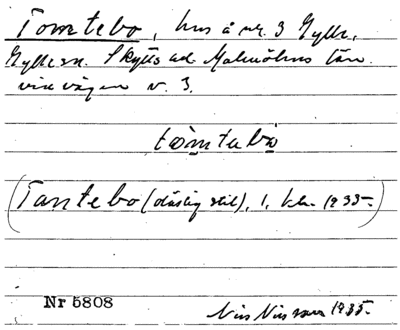 Tomtebo, hus å nr. 3 Gylle,
Gylle sn. Skytts hd. Malmöhus län.
vid vägen v. 3.
tòmtabò
(Tantebo (otäsig stil), 1. kl. 1935.)
Nr 5808
Nils Nilsson 1935.